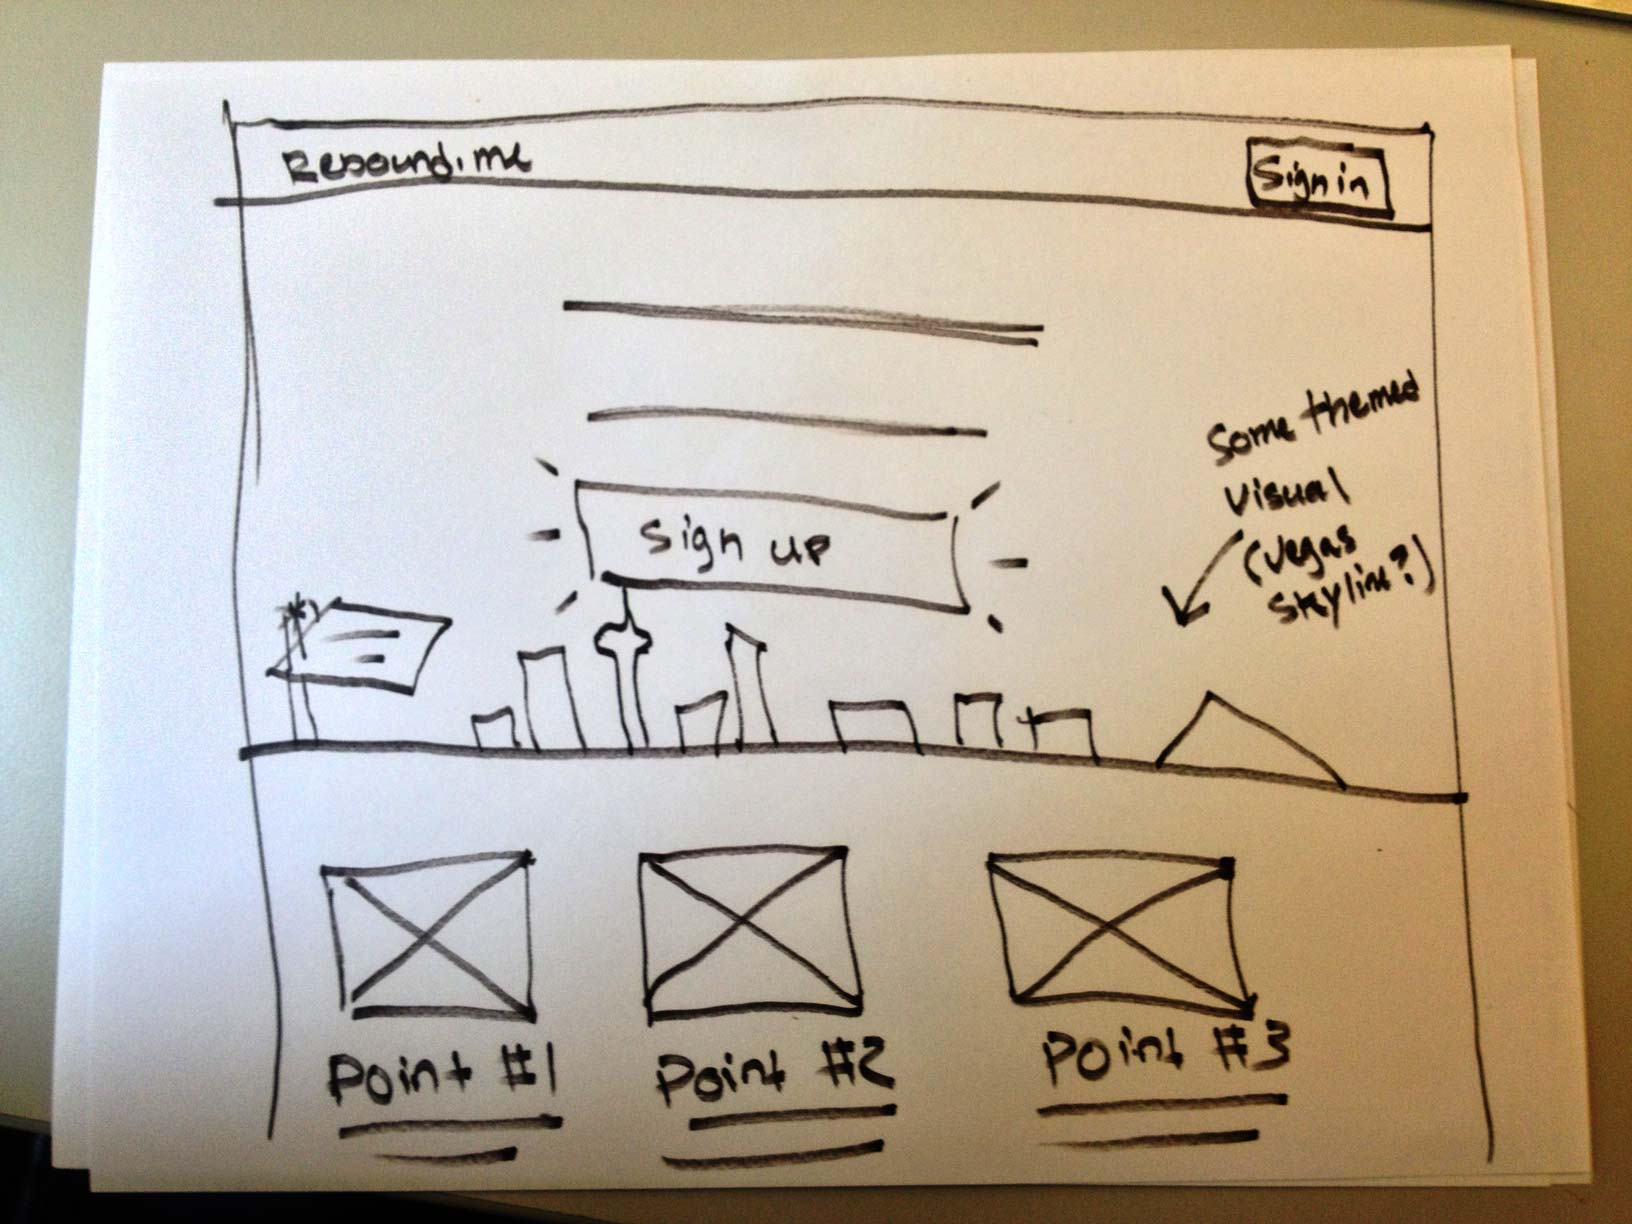 Rebound.me
Sign in
Some themed
visual
(vegas
skyline?)
Sign up
Point #1
Point #2
Point #3